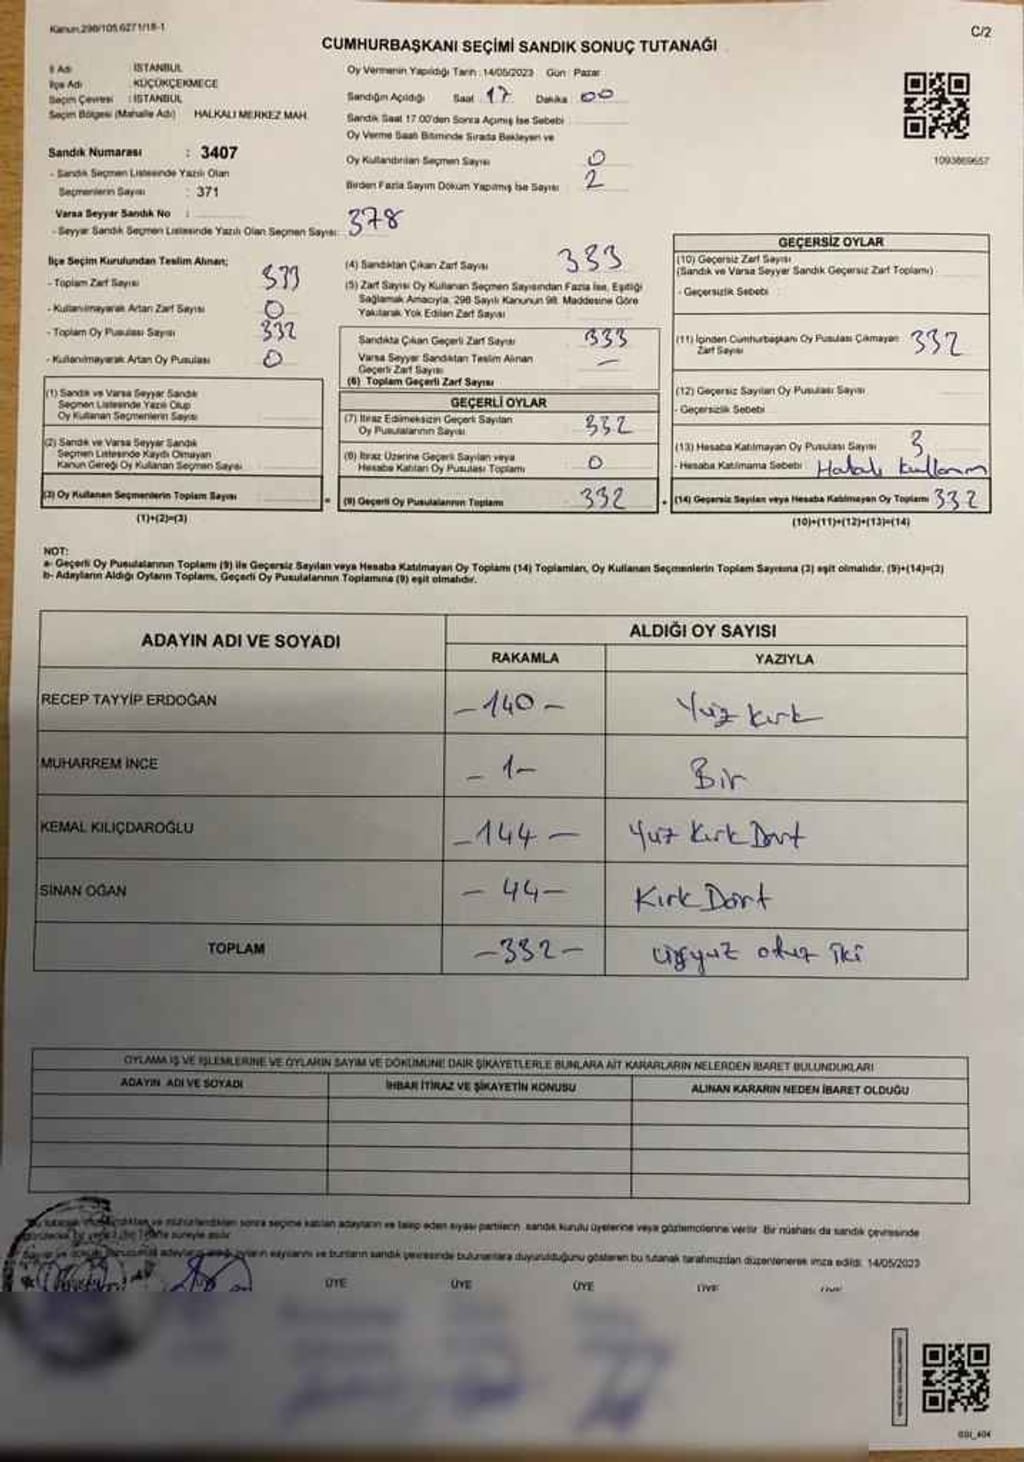 Kanun.298/105,6271/18-1
C/2
CUMHURBAŞKANI SEÇİMİ SANDIK SONUÇ TUTANAĞI
İl Adı : İSTANBUL
İlçe Adı : KÜÇÜKÇEKMECE
Seçim Çevresi : İSTANBUL
Seçim Bölgesi (Mahalle Adı) HALKALI MERKEZ MAH.
Sandık Numarası : 3407
- Sandık Seçmen Listesinde Yazılı Olan
Seçmenlerin Sayısı : 371
Varsa Seyyar Sandık No :
- Seyyar Sandık Seçmen Listesinde Yazılı Olan Seçmen Sayısı: 378
Oy Vermenin Yapıldığı Tarih :14/05/2023 Gün : Pazar
Sandığın Açıldığı Saat 17 Dakika 00
Sandık Saat 17.00'den Sonra Açılmış İse Sebebi
Oy Verme Saati Bitiminde Sırada Bekleyen ve
Oy Kullandırılan Seçmen Sayısı 0
Birden Fazla Sayım Döküm Yapılmış İse Sayısı 2
1093869657
İlçe Seçim Kurulundan Teslim Alınan;
- Toplam Zarf Sayısı
- Kullanılmayarak Artan Zarf Sayısı 0
- Toplam Oy Pusulası Sayısı 332
- Kullanılmayarak Artan Oy Pusulası 0
(1) Sandık ve Varsa Seyyar Sandık
Seçmen Listesinde Yazılı Olup
Oy Kullanan Seçmenlerin Sayısı
(2) Sandık ve Varsa Seyyar Sandık
Seçmen Listesinde Kaydı Olmayan
Kanun Gereği Oy Kullanan Seçmen Sayısı
(3) Oy Kullanan Seçmenlerin Toplam Sayısı
(1)+(2)=(3)
(4) Sandıktan Çıkan Zarf Sayısı 333
(5) Zarf Sayısı Oy Kullanan Seçmen Sayısından Fazla İse, Eşitliği
Sağlamak Amacıyla, 298 Sayılı Kanunun 98. Maddesine Göre
Yakılarak Yok Edilen Zarf Sayısı
Sandıkta Çıkan Geçerli Zarf Sayısı 333
Varsa Seyyar Sandıktan Teslim Alınan
Geçerli Zarf Sayısı —
(6) Toplam Geçerli Zarf Sayısı
GEÇERLİ OYLAR
(7) İtiraz Edilmeksizin Geçerli Sayılan
Oy Pusulalarının Sayısı 332
(8) İtiraz Üzerine Geçerli Sayılan veya
Hesaba Katılan Oy Pusulası Toplamı 0
(9) Geçerli Oy Pusulalarının Toplamı 332
GEÇERSİZ OYLAR
(10) Geçersiz Zarf Sayısı
(Sandık ve Varsa Seyyar Sandık Geçersiz Zarf Toplamı)
- Geçersizlik Sebebi :
(11) İçinden Cumhurbaşkanı Oy Pusulası Çıkmayan
Zarf Sayısı 332
(12) Geçersiz Sayılan Oy Pusulası Sayısı
- Geçersizlik Sebebi
(13) Hesaba Katılmayan Oy Pusulası Sayısı 3
- Hesaba Katılmama Sebebi Hatalı kullanım
(14) Geçersiz Sayılan veya Hesaba Katılmayan Oy Toplamı 332
(10)+(11)+(12)+(13)=(14)
NOT:
a- Geçerli Oy Pusulalarının Toplamı (9) ile Geçersiz Sayılan veya Hesaba Katılmayan Oy Toplamı (14) Toplamları, Oy Kullanan Seçmenlerin Toplam Sayısına (3) eşit olmalıdır. (9)+(14)=(3)
b- Adayların Aldığı Oyların Toplamı, Geçerli Oy Pusulalarının Toplamına (9) eşit olmalıdır.
ADAYIN ADI VE SOYADI
ALDIĞI OY SAYISI
RAKAMLA YAZIYLA
RECEP TAYYİP ERDOĞAN –140– Yüz kırk
MUHARREM İNCE –1– Bir
KEMAL KILIÇDAROĞLU –144– Yüz Kırk Dört
SİNAN OĞAN –44– Kırk Dört
TOPLAM –332– üçyüz otuz iki
OYLAMA İŞ VE İŞLEMLERİNE VE OYLARIN SAYIM VE DÖKÜMÜNE DAİR ŞİKAYETLERLE BUNLARA AİT KARARLARIN NELERDEN İBARET BULUNDUKLARI
ADAYIN ADI VE SOYADI İHBAR İTİRAZ VE ŞİKAYETİN KONUSU ALINAN KARARIN NEDEN İBARET OLDUĞU
sonra seçime katılan adayların ve talep eden siyasi partilerin sandık kurulu üyelerine veya gözlemcilerine verilir. Bir nüshası da sandık çevresinde
oyların sayılarını ve bunların sandık çevresinde bulunanlara duyurulduğunu gösteren bu tutanak tarafımızdan düzenlenerek imza edildi. 14/05/2023
BAŞKAN ÜYE ÜYE ÜYE ÜYE ÜYE